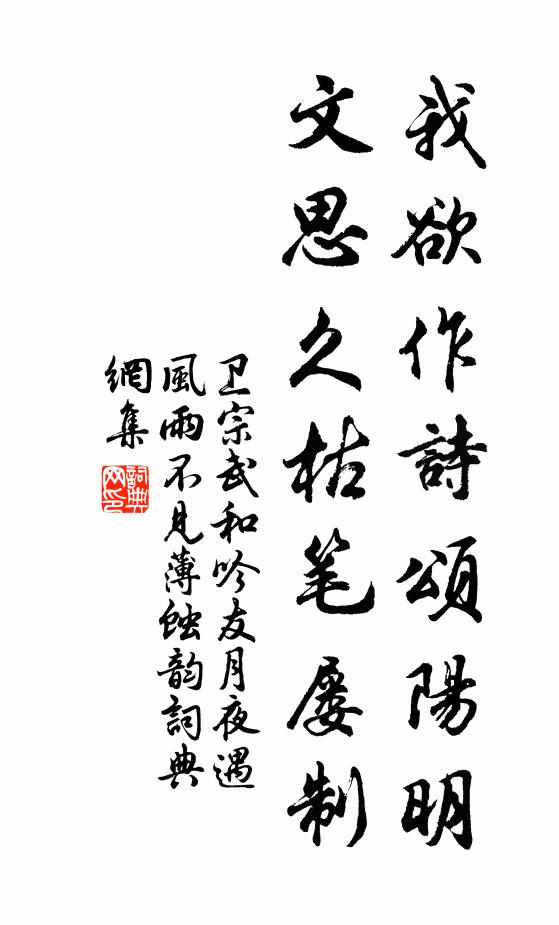 我欲作詩頌陽明
文思久枯笔屡制
卫宗武和吟友月夜遇
風雨不见薄蚀韵詞典
網集
詞典
网印